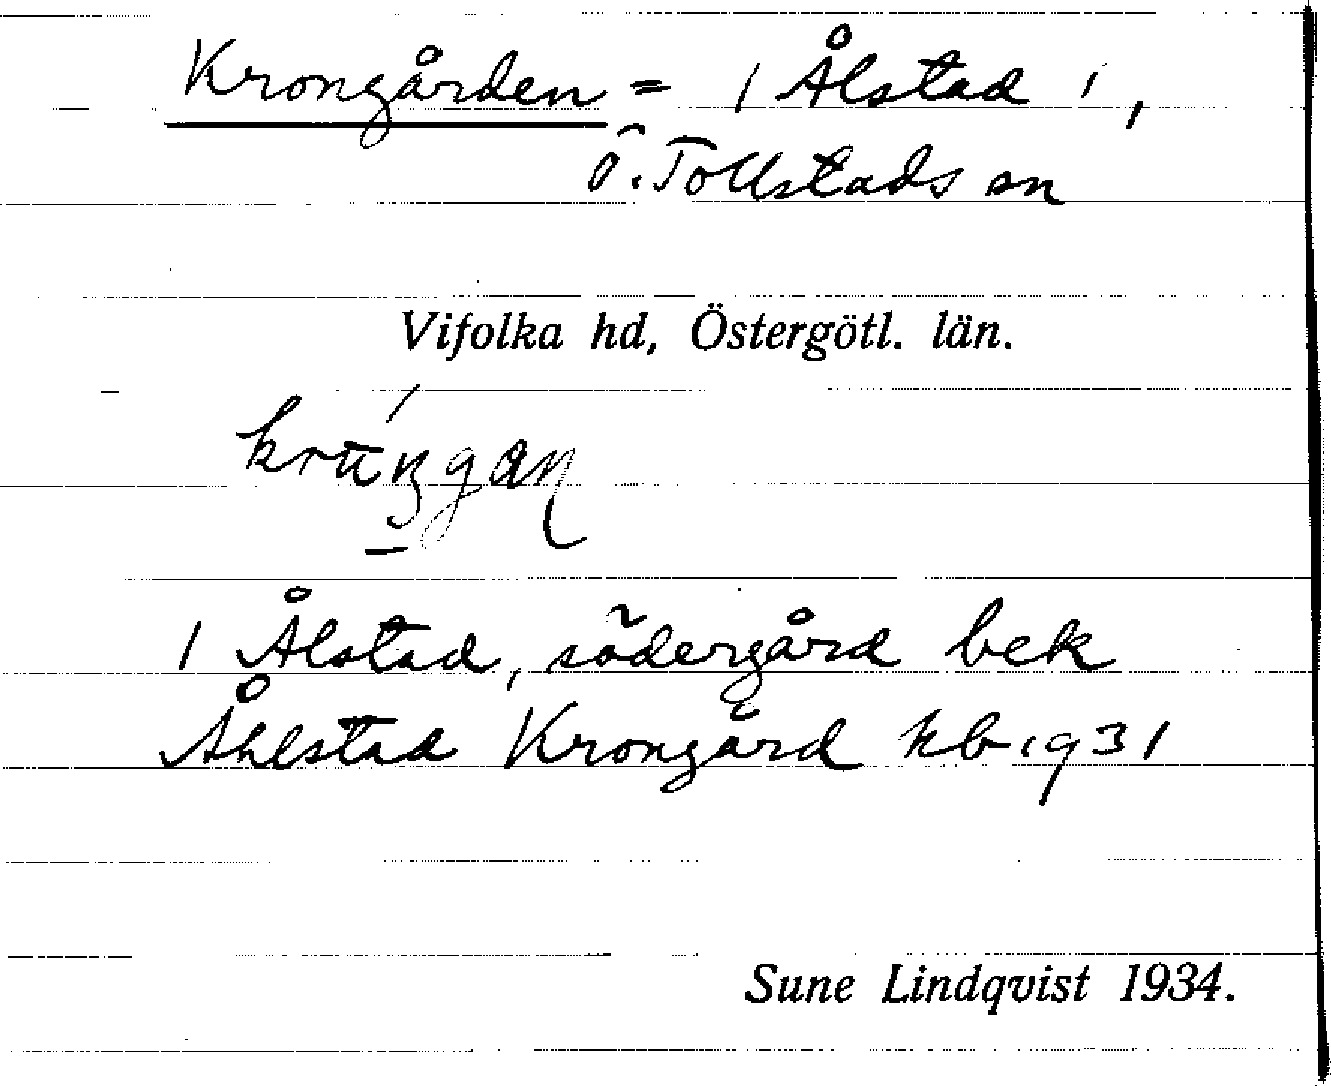 Krongården = 1 Ålstad 1,
Ö. Tollstads sn
Vifolka hd, Östergötl. län.
1 Ålstad, södergård bek
Åhlstad Krongård kb 1931
Sune Lindqvist 1934.